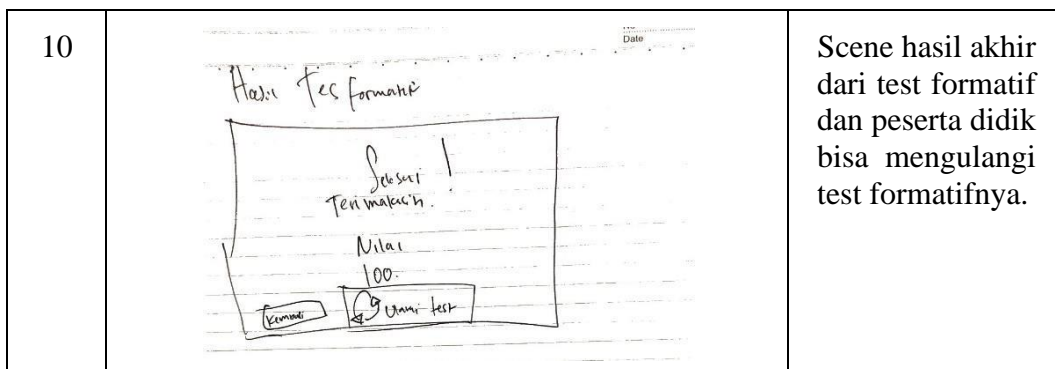 10
No
Date
Hasil Tes formatif
Selesai !
Terimakasih.
Nilai
100.
Kembali
Ulangi test
Scene hasil akhir
dari test formatif
dan peserta didik
bisa mengulangi
test formatifnya.